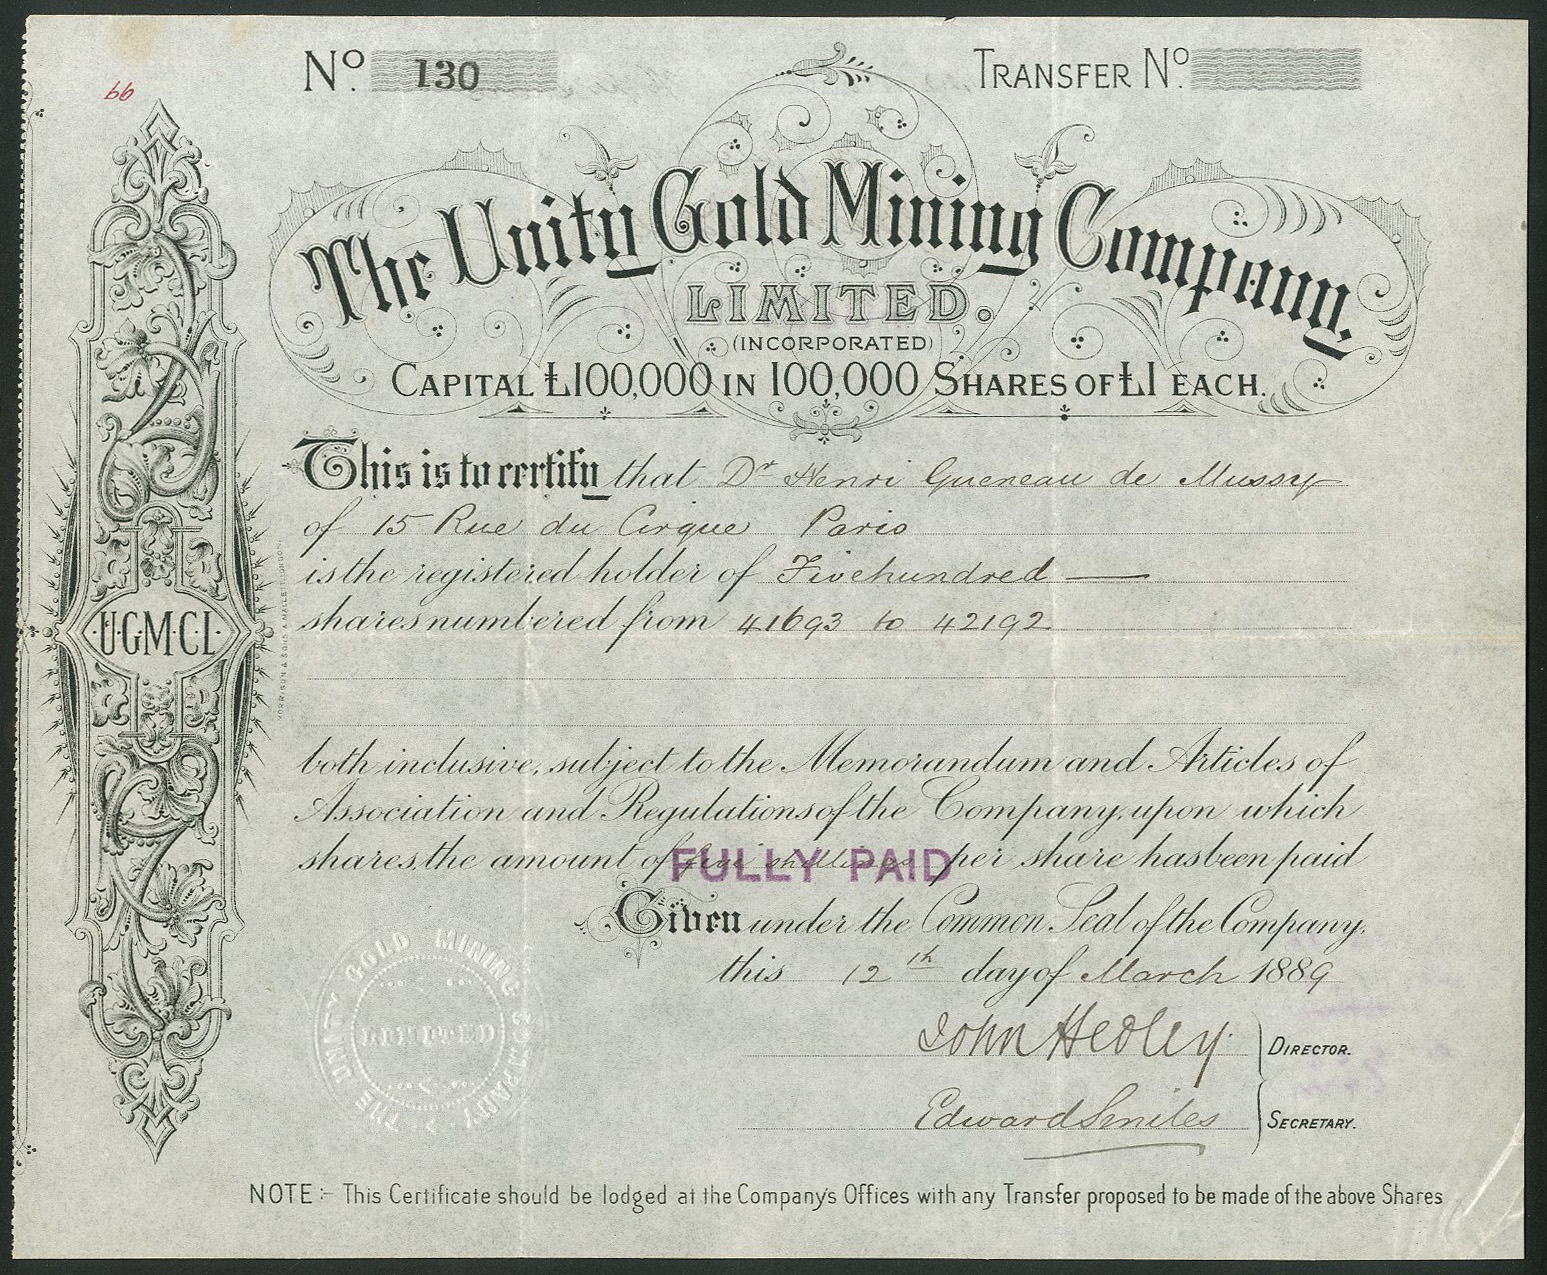 Nº. 130 TRANSFER Nº.
66
The Unity Gold Mining Company.
LIMITED.
(INCORPORATED)
CAPITAL £100,000 IN 100,000 SHARES OF £1 EACH.
This is to certify that Dr Henri Gueneau de Mussy
of 15 Rue du Cirque Paris
is the registered holder of Fivehundred —
shares numbered from 41693 to 42192
U·G·M·C·L
MORRISON & SONS & MALLET, LONDON.
both inclusive, subject to the Memorandum and Articles of
Association and Regulations of the Company, upon which
shares, the amount of five shillings per share has been paid
FULLY PAID
Given under the Common Seal of the Company,
this 12th day of March 1889
THE UNITY GOLD MINING COMPANY
LIMITED
John Hedley DIRECTOR.
Edward Smiles SECRETARY.
NOTE:- This Certificate should be lodged at the Company's Offices with any Transfer proposed to be made of the above Shares